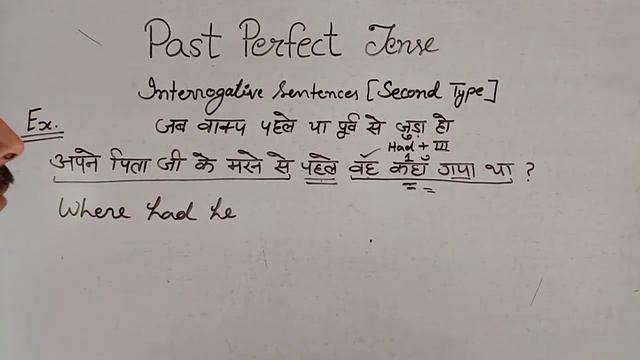 Past Perfect Tense
Interrogative Sentences [Second Type]
Ex.
जब वाक्य पहले या पूर्व से जुड़ा हो
Had + III
अपने पिता जी के मरने से पहले वह कहाँ गया था ?
Where had he